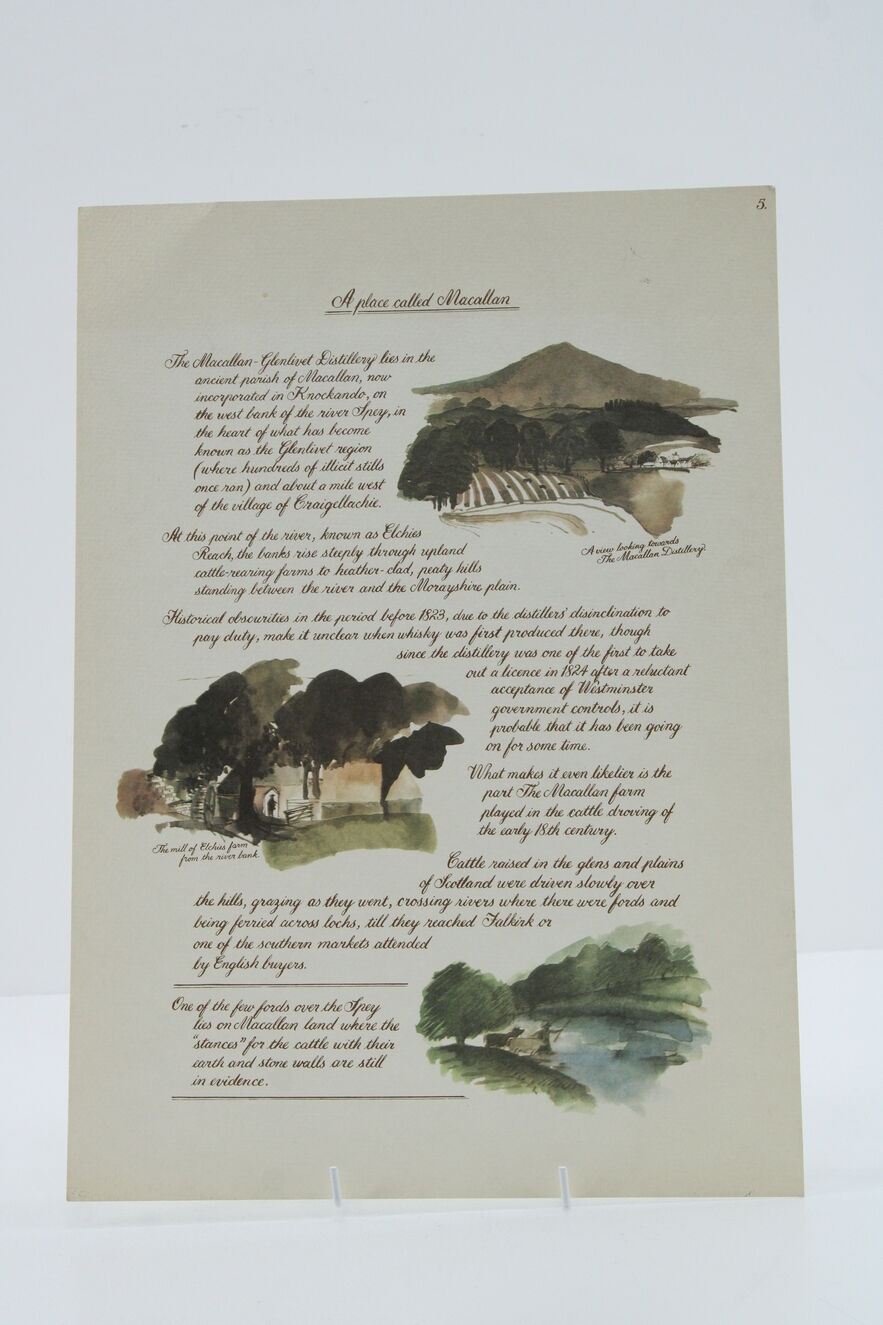 5.
A place called Macallan
The Macallan-Glenlivet Distillery lies in the
ancient parish of Macallan, now
incorporated in Knockando, on
the west bank of the river Spey, in
the heart of what has become
known as the Glenlivet region
(where hundreds of illicit stills
once ran) and about a mile west
of the village of Craigellachie.
A view looking towards
The Macallan Distillery.
At this point of the river, known as Elchies
Reach, the banks rise steeply through upland
cattle-rearing farms to heather-clad, peaty hills
standing between the river and the Morayshire plain.
Historical obscurities in the period before 1823, due to the distillers' disinclination to
pay duty, make it unclear when whisky was first produced there, though
since the distillery was one of the first to take
out a licence in 1824 after a reluctant
acceptance of Westminster
government controls, it is
probable that it has been going
on for some time.
What makes it even likelier is the
part The Macallan farm
played in the cattle droving of
the early 18th century.
The mill of Elchies farm
from the river bank.
Cattle raised in the glens and plains
of Scotland were driven slowly over
the hills, grazing as they went, crossing rivers where there were fords and
being ferried across lochs, till they reached Falkirk or
one of the southern markets attended
by English buyers.
One of the few fords over the Spey
lies on Macallan land where the
"stances" for the cattle with their
earth and stone walls are still
in evidence.